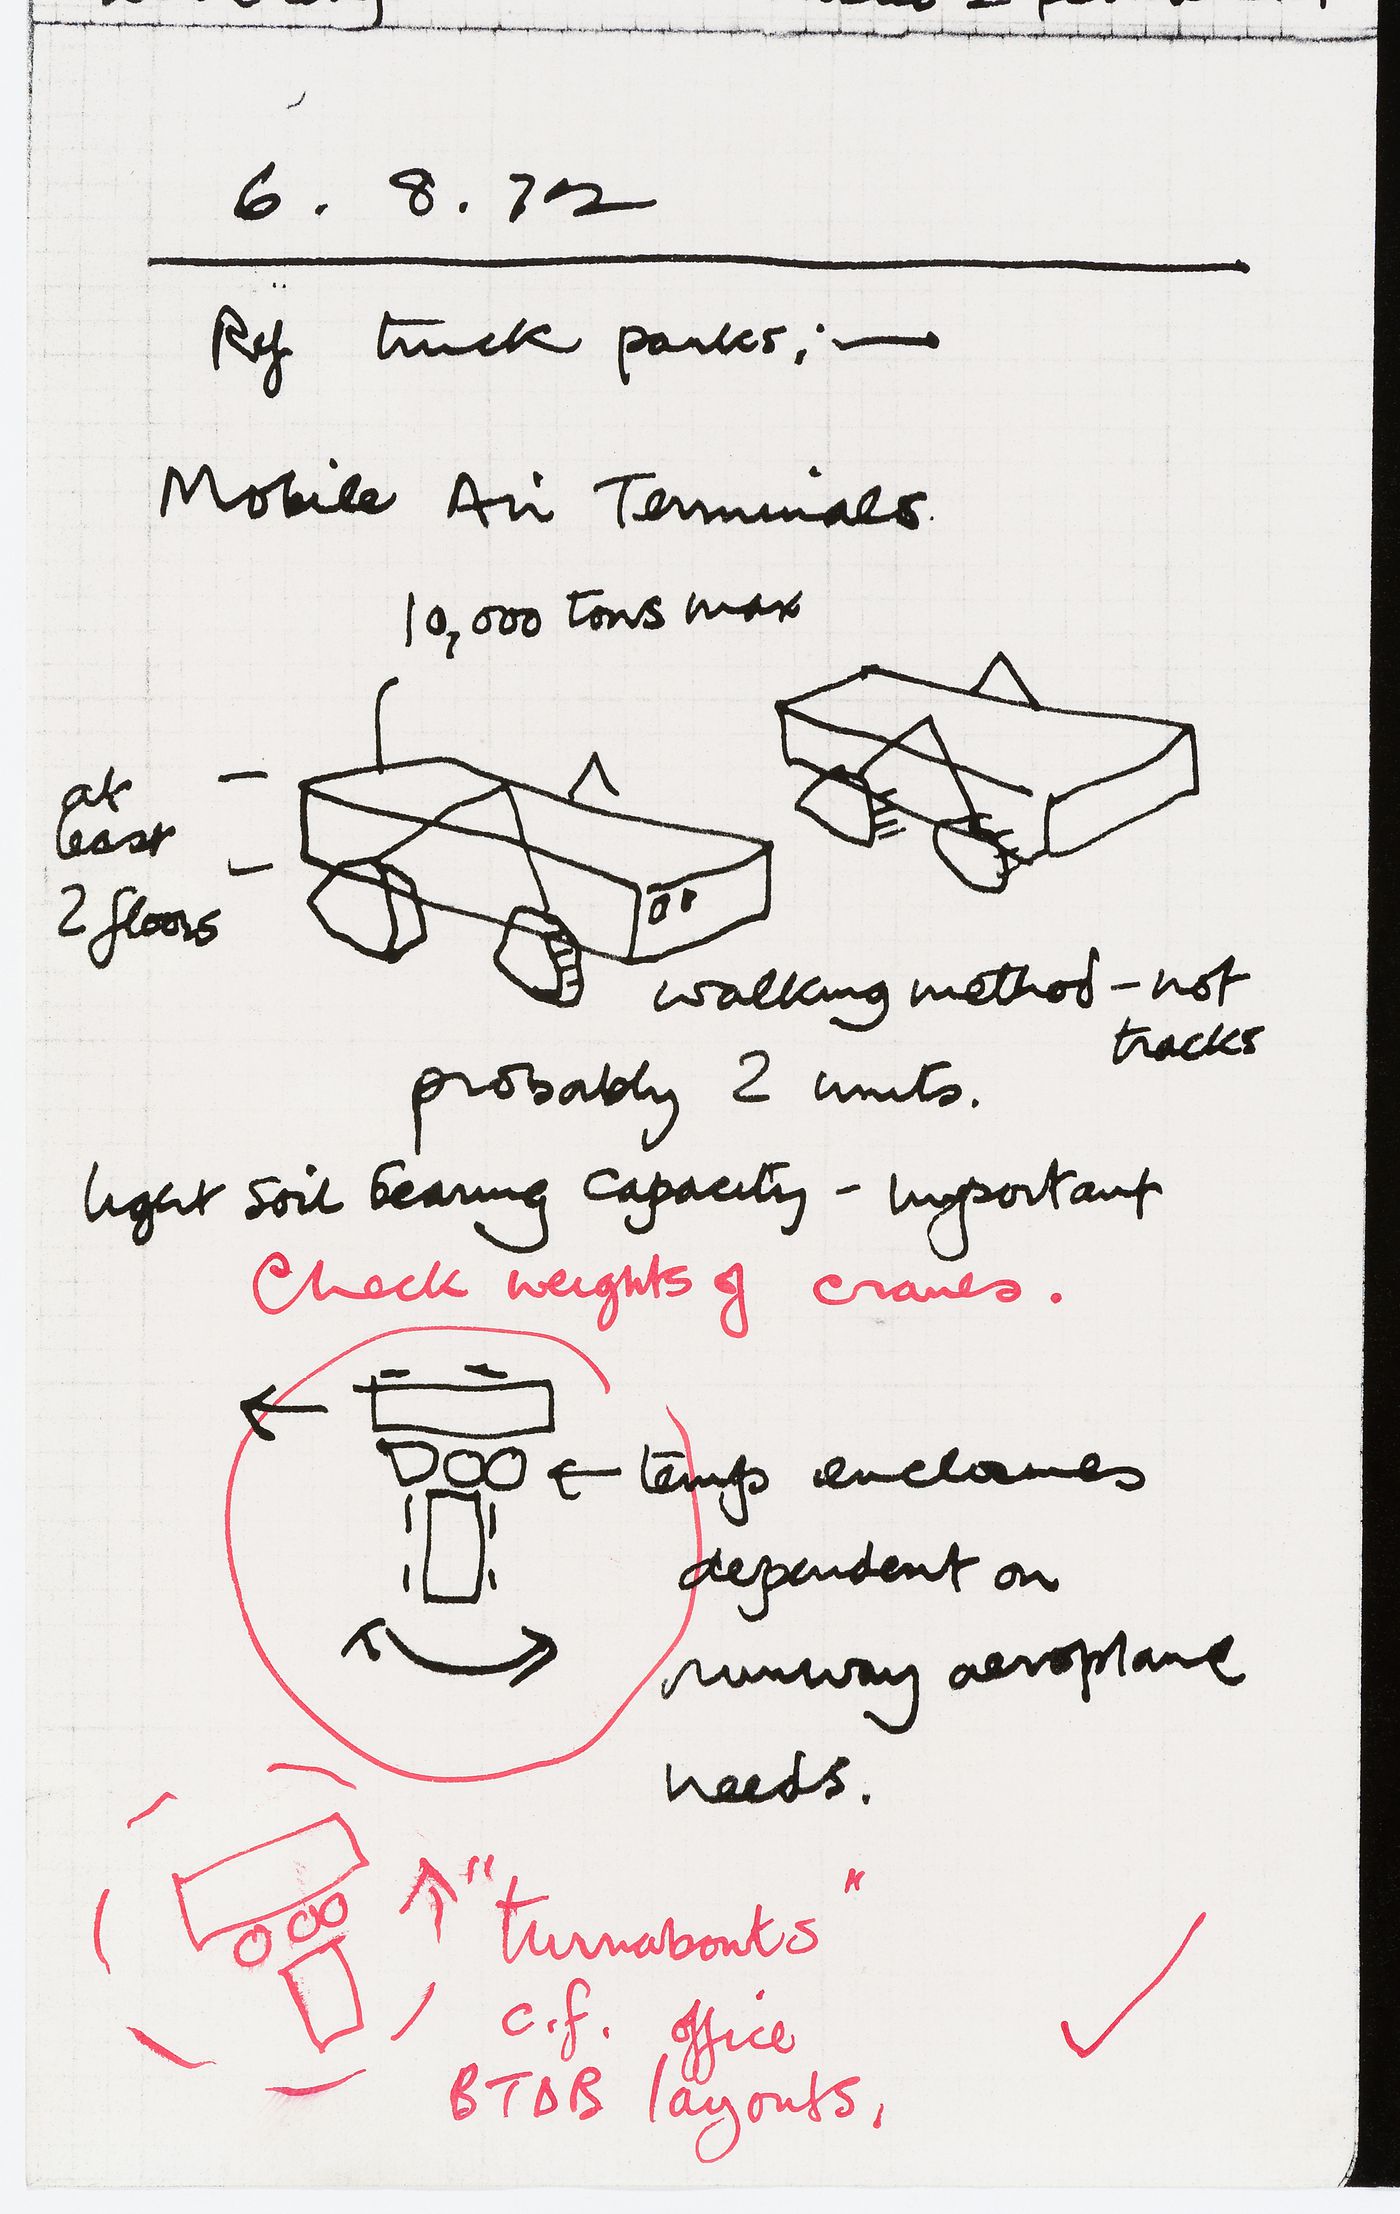 6. 8. 72
Ref truck parks:—
Mobile Air Terminals.
10,000 tons max
at
least
2 floors
walking method - not
tracks
probably 2 units.
light soil bearing capacity - important
Check weights of cranes.
temp enclosures
dependent on
runway aeroplane
needs.
"turnabouts"
c.f. office
BTDB layouts.